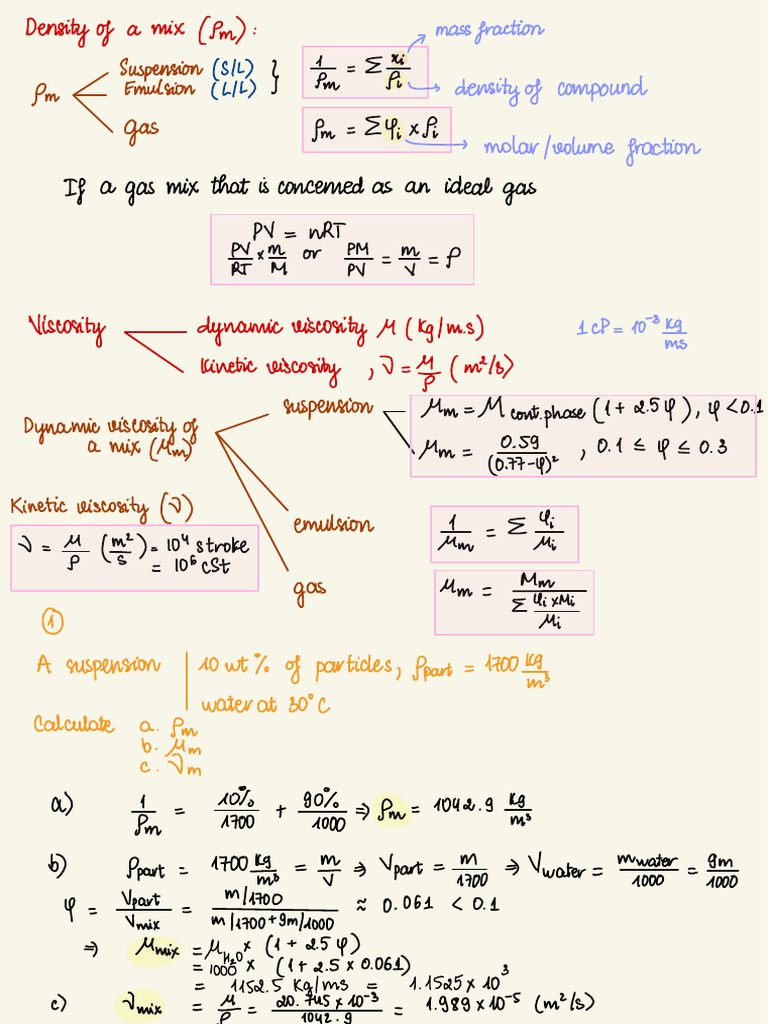 Density of a mix (ρm):
mass fraction
ρm
Suspension (S/L)
Emulsion (L/L) }
1/ρm = Σ xi/ρi
density of compound
gas
ρm = Σφi × ρi
molar/volume fraction
If a gas mix that is concerned as an ideal gas
PV = nRT
PV/RT × m/M or PM/PV = m/V = ρ
Viscosity
dynamic viscosity μ (kg/m.s)
1 cP = 10⁻³ kg/ms
kinetic viscosity , ν = μ/ρ (m²/s)
Dynamic viscosity of
a mix (μm)
suspension
μm = μ cont.phase (1 + 2.5φ), φ < 0.1
μm = 0.59/(0.77-φ)² , 0.1 ≤ φ ≤ 0.3
Kinetic viscosity (ν)
ν = μ/ρ (m²/s) = 10⁴ stroke
= 10⁶ cSt
emulsion
1/μm = Σ φi/μi
gas
μm = Mm / Σ (φi×Mi/μi)
①
A suspension | 10 wt% of particles, ρpart = 1700 kg/m³
water at 30°C
Calculate a. ρm
b. μm
c. νm
a) 1/ρm = 10%/1700 + 90%/1000 ⇒ ρm = 1042.9 kg/m³
b) ρpart = 1700 kg/m³ = m/V ⇒ Vpart = m/1700 ⇒ Vwater = mwater/1000 = 9m/1000
φ = Vpart/Vmix = (m/1700)/(m/1700+9m/1000) ≈ 0.061 < 0.1
⇒ μmix = μH₂O × (1 + 2.5φ)
= 1000 × (1 + 2.5 × 0.061)
= 1152.5 kg/ms = 1.1525 × 10³
c) νmix = μ/ρ = 20.745×10⁻³/1042.9 = 1.989×10⁻⁵ (m²/s)